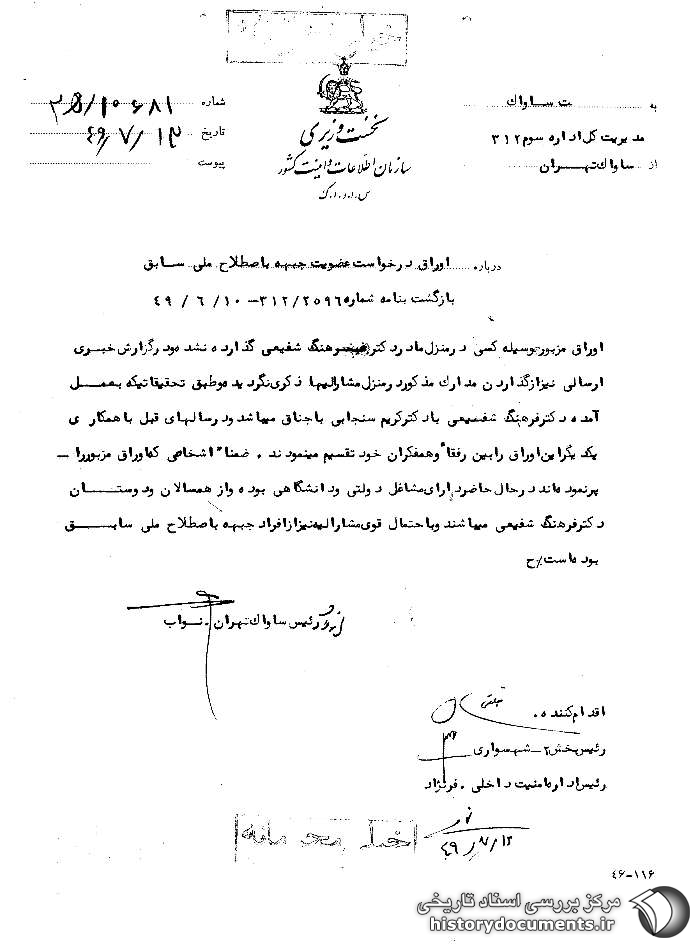 خیلی محرمانه
به ت ساواک
مدیریت کل اداره سوم ۳۱۲
از ساواک تهران
نخست وزیری
سازمان اطلاعات و امنیت کشور
س.ا.و.ا.ک
شماره ۱۰۶۸۱/
تاریخ ۴۹/۷/۱۳
پیوست
درباره اوراق درخواست عضویت جبهه باصطلاح ملی سابق
بازگشت بنامه شماره ۳۱۲/۲۵۹۶ – ۴۹/۶/۱۰
اوراق مزبور بوسیله کسی در منزل مادر دکتر فرهنگ شفیعی گذارده نشده و در گزارش خبری
ارسالی نیز از گذاردن مدارک مذکور در منزل مشارالیها ذکری نگردیده و طبق تحقیقاتیکه بعمل
آمده دکتر فرهنگ شفیعی با دکتر کریم سنجابی باجناق میباشد و در سالهای قبل با همکاری
یکدیگر این اوراق را بین رفقا و همفکران خود تقسیم مینمودند . ضمنا" اشخاصی که اوراق مزبور را –
پر نموده‌اند در حال حاضر دارای مشاغل دولتی و دانشگاهی بوده و از همسالان و دوستان
دکتر فرهنگ شفیعی میباشند و با احتمال قوی مشارالیه نیز از افراد جبهه باصطلاح ملی سابق
بوده است/ح
رئیس ساواک تهران . نواب
اقدام کننده .
رئیس بخش ۲ – شهسواری
رئیس اداره امنیت داخلی . فرنژاد
۴۹/۷/۱۲
خیلی محرمانه
۴۶-۱۱۶
مرکز بررسی اسناد تاریخی
historydocuments.ir